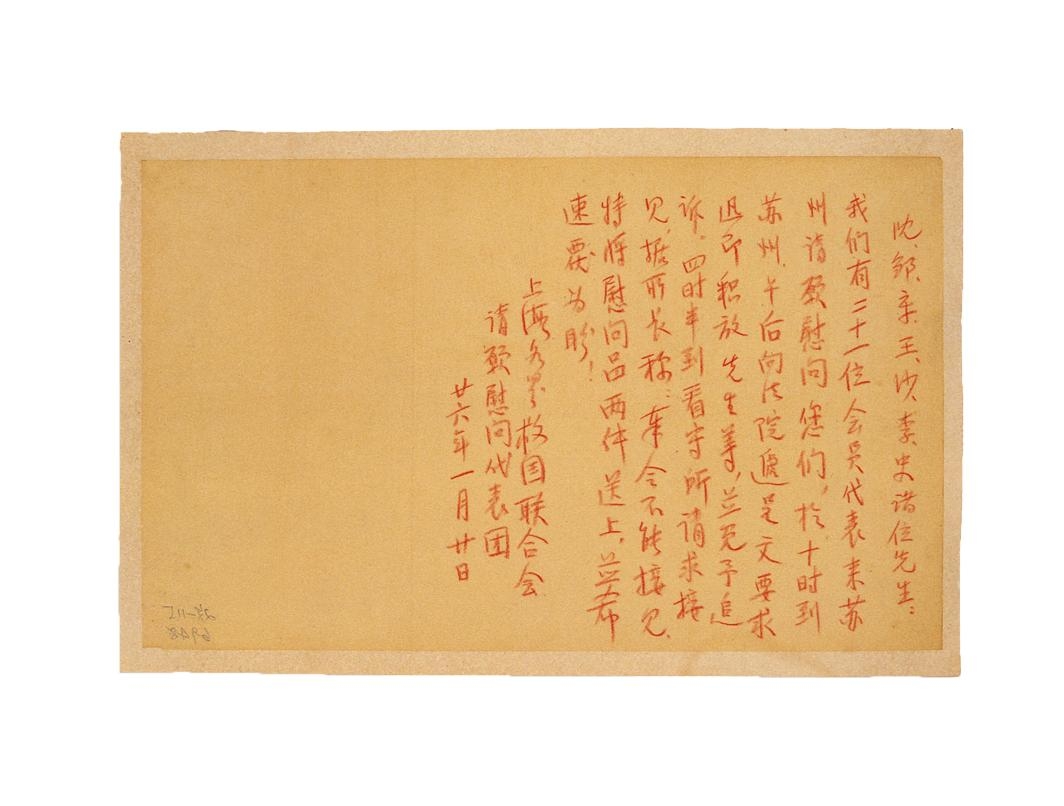 沈、邹、章、王、沙、李、史诸位先生：
我们有二十一位会员代表来苏
州请愿慰问您们，于十时到
苏州，午后向法院递呈文要求
迅即释放先生等，并免予追
诉。四时半到看守所请求接
见，据所长称：奉令不能接见。
特将慰问品两件送上，并希
速覆为盼！
上海各界救国联合会
请愿慰问代表团
廿六年一月廿日